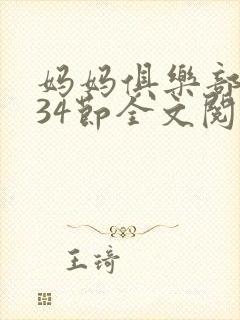 妈妈俱樂部
34節全文閱
王琦